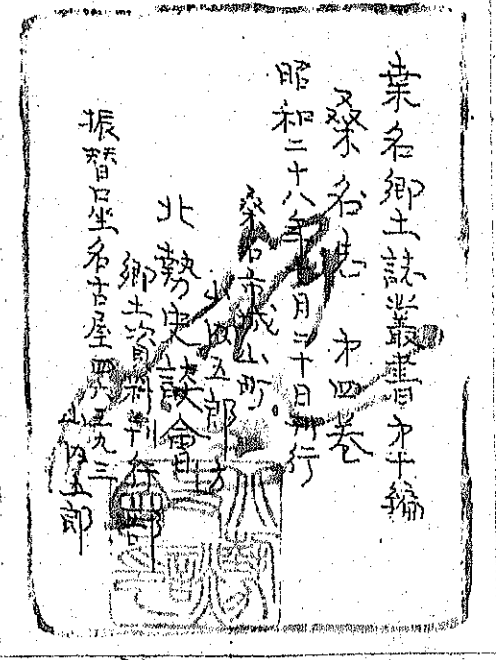 桑名郷土誌叢書第十編
桑名志 第四巻
昭和二十八年 月二十日刊行
桑名市城山町
山内五郎方
北勢史談會
郷土資料刊行部
振替口坐名古屋四六五九三
山内五郎